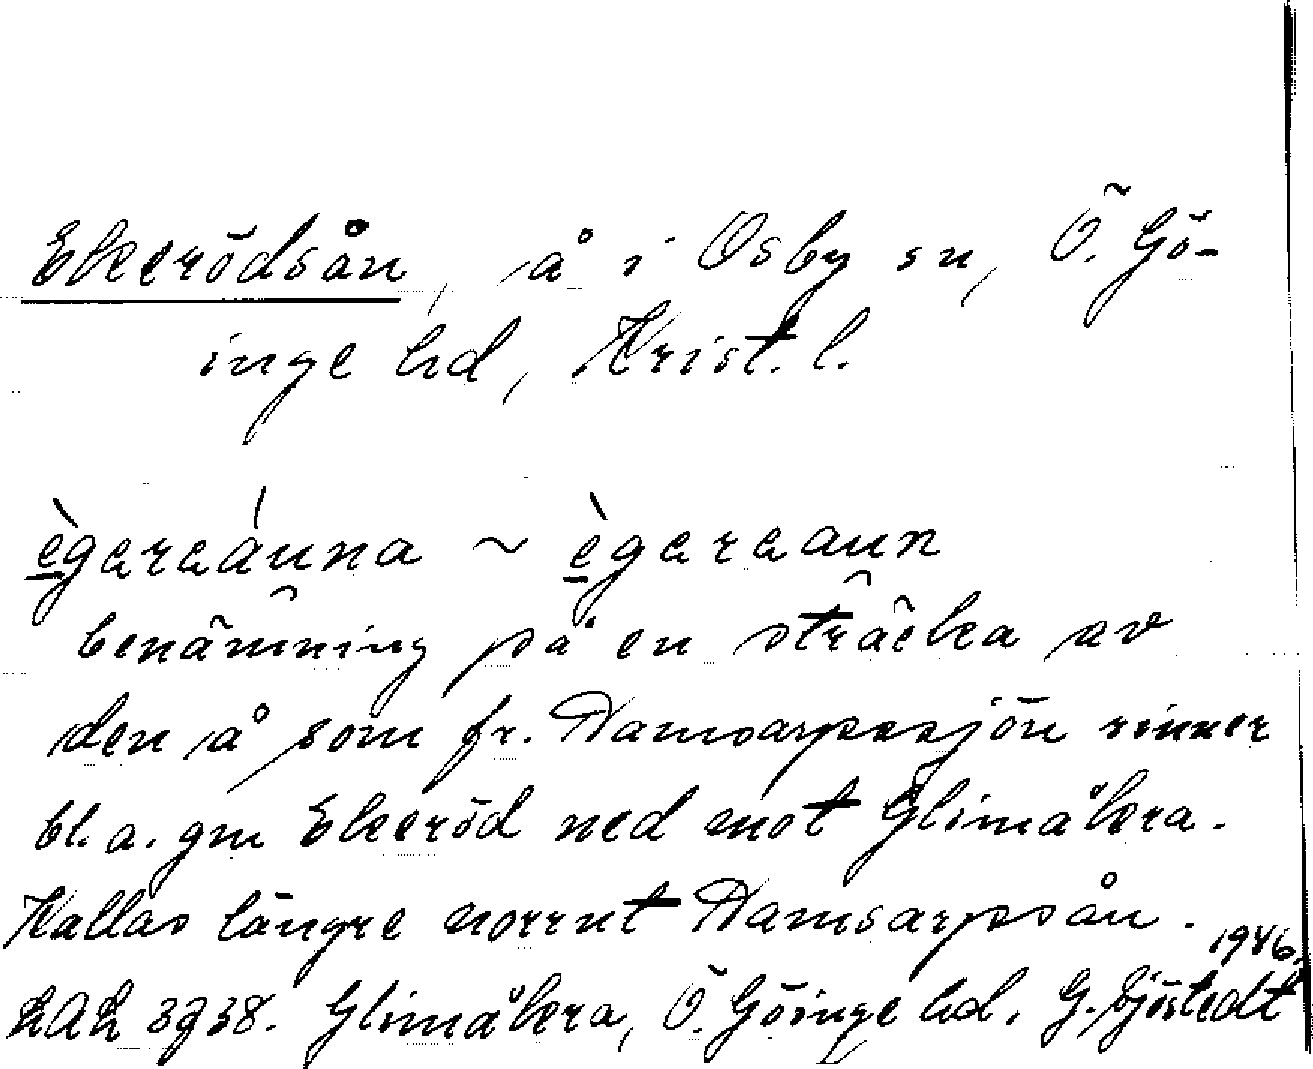 Ekerödsån, å i Osby sn, Ö. Gö-
inge hd, Krist. l.
ègareáuna ~ ègareaun
benämning på en sträcka av
den å som fr. Hamsarpssjön rinner
bl. a. gm Ekeröd ned mot Glimåkra.
Kallas längre norrut Hamsarpsån.
1946.
LAL 3938. Glimåkra, Ö. Göinge hd. G. Sjöstedt